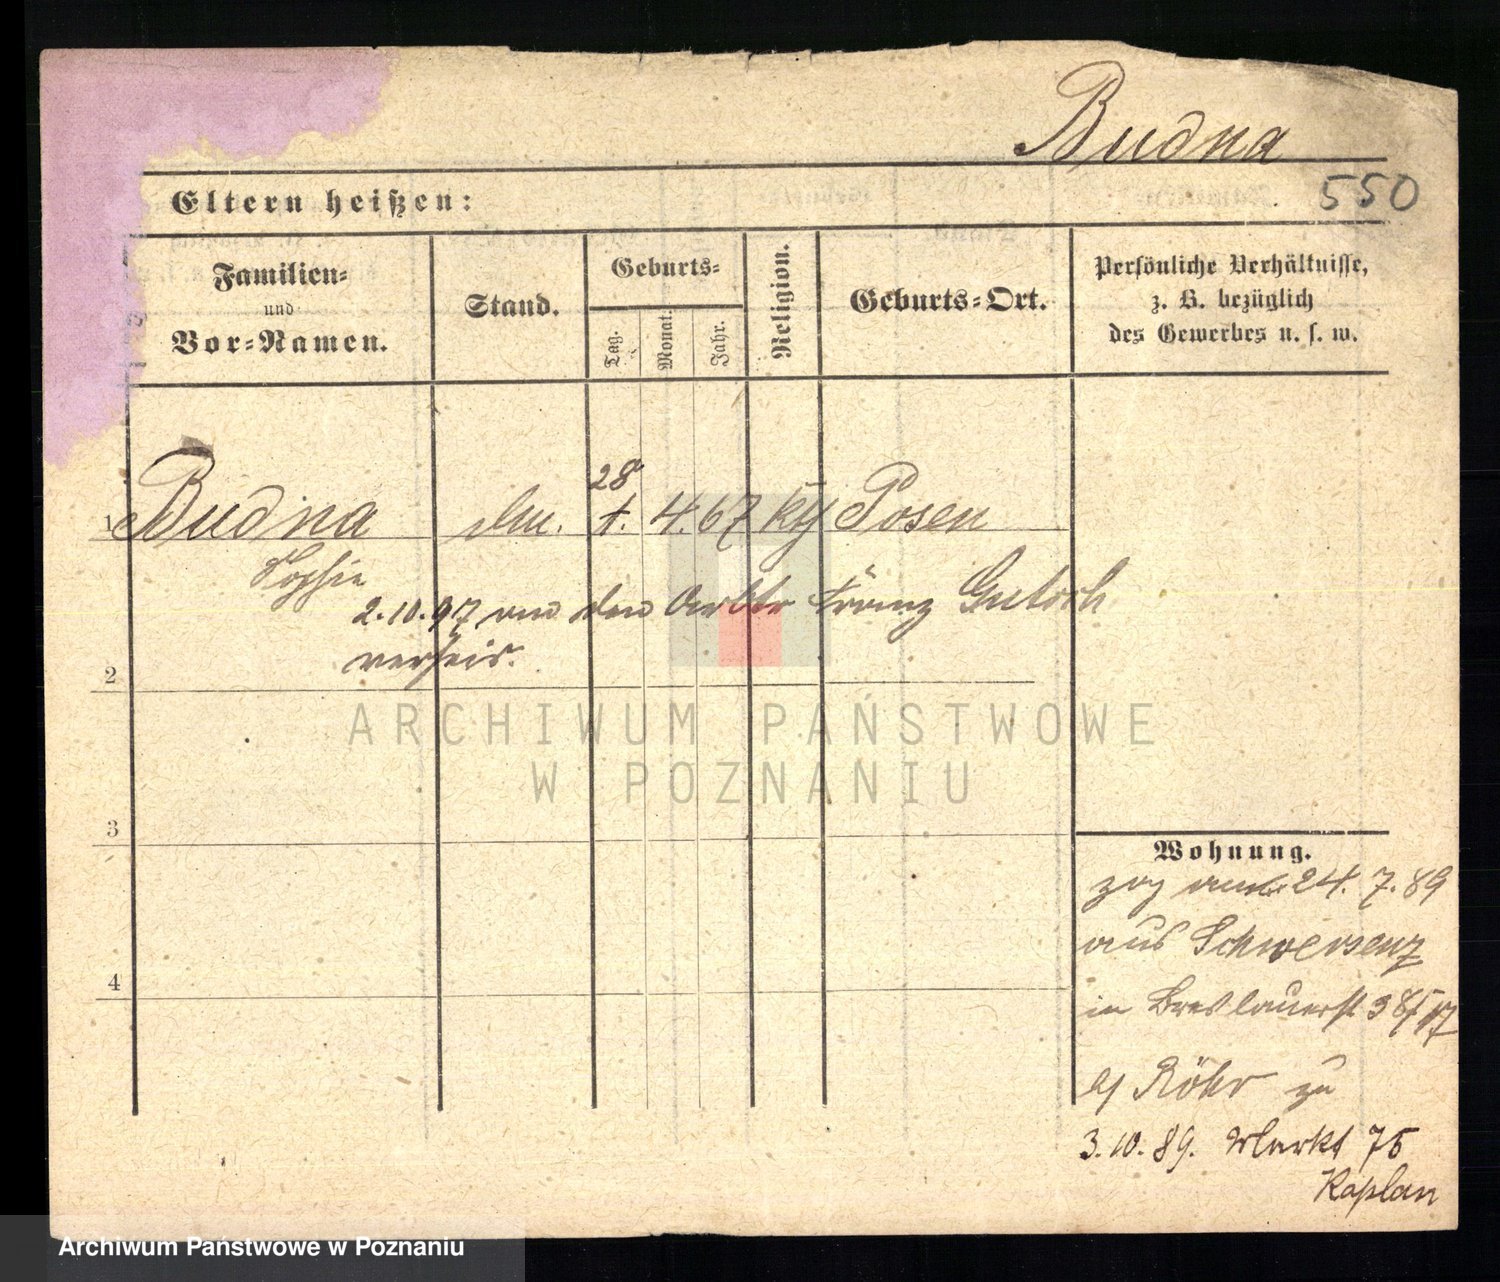 Budna
550
Eltern heißen:
Familien-
und
Vor-Namen.
Stand.
Geburts-
Tag.
Monat.
Jahr.
Religion.
Geburts-Ort.
Persönliche Verhältnisse,
z. B. bezüglich
des Gewerbes u. s. w.
28
1 Budna 4. 67 Posen
Sophie
2.10.97 an den Franz
verheir.
2
3
4
Wohnung.
zog am 24. 7. 89
aus Schwersenz
in Breslauerst 38/17
b/ Röhr zu
3.10.89. Markt 75
Kaplan
ARCHIWUM PAŃSTWOWE
W POZNANIU
Archiwum Państwowe w Poznaniu